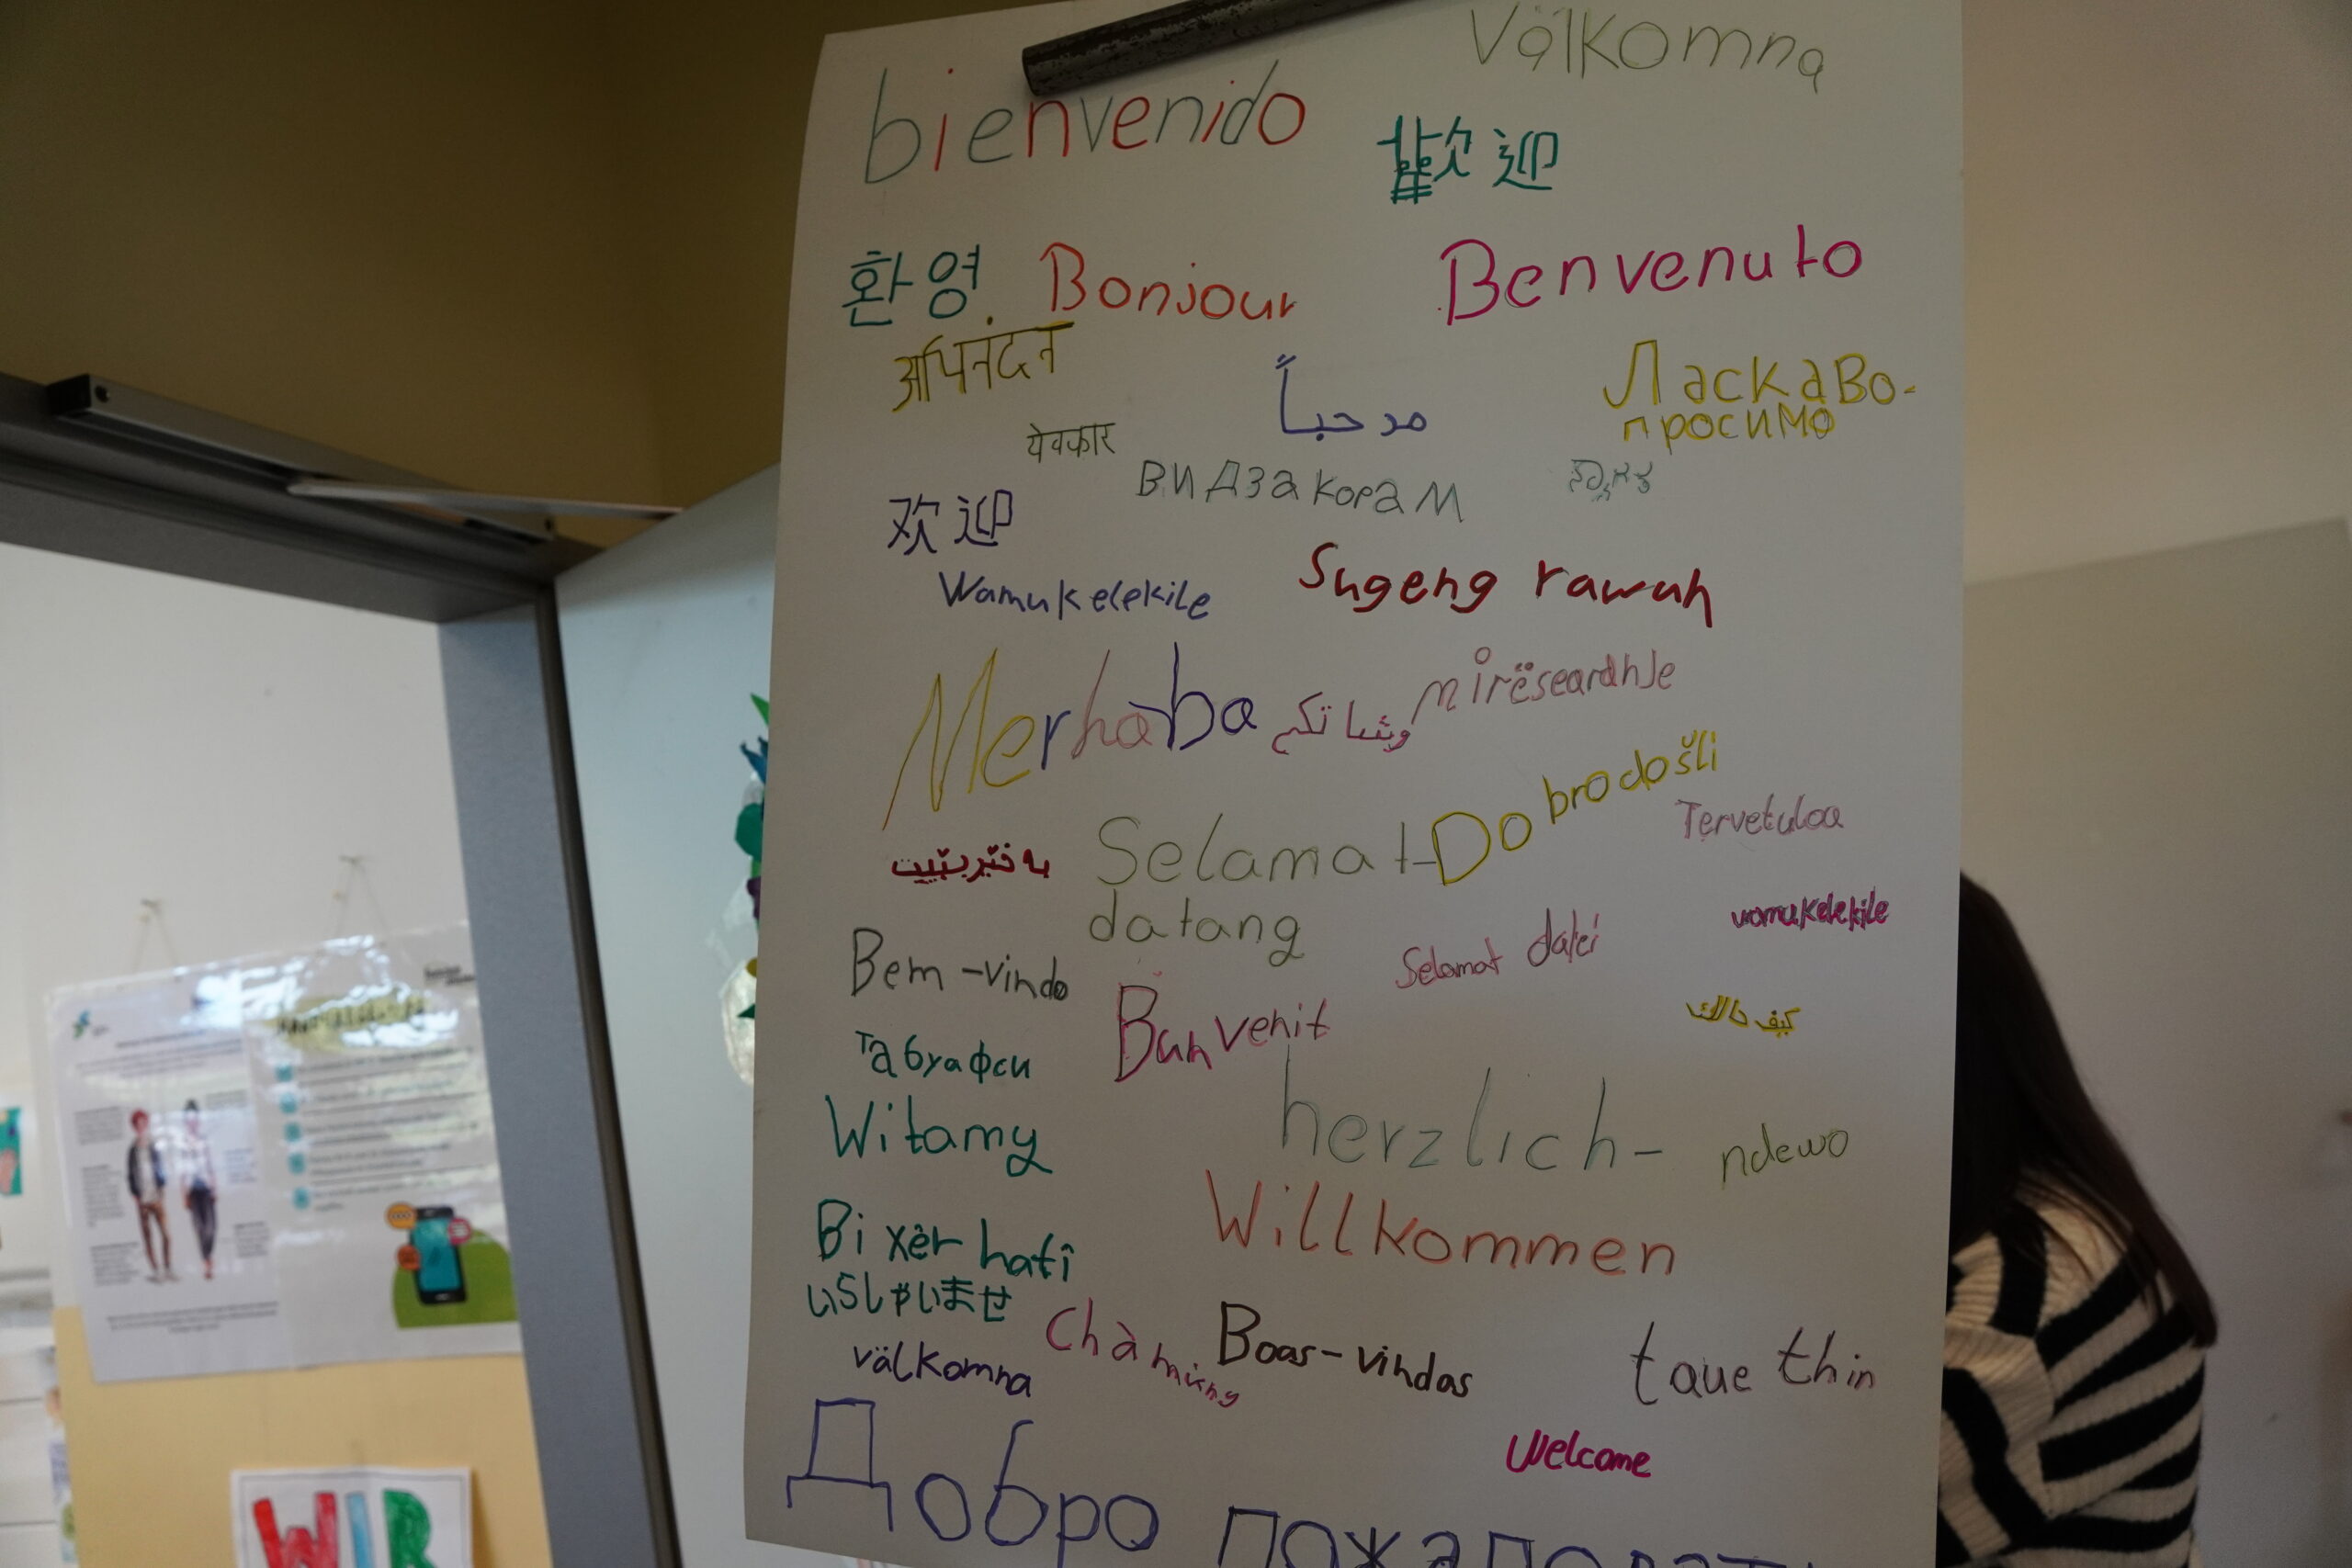 Välkomna
bienvenido
歡迎
환영
Bonjour
Benvenuto
अभिनंदन
مرحباً
Ласкаво-
просимо
येवकार
видза корам
欢迎
Wamukelekile
Sugeng rawuh
Merhaba
mirëseardhje
Dobrodošli
Tervetuloa
بەخێربێیت
Selamat-
datang
wamukelekile
Bem-vindo
Selamat datei
Bun venit
كيف حالك
Табуафси
Witamy
herzlich-
ndewo
Willkommen
Bi xêr hatî
いらしゃいませ
Chào mừng
Boas-vindas
taue thin
välkomna
Welcome
Добро пожаловать
WIR